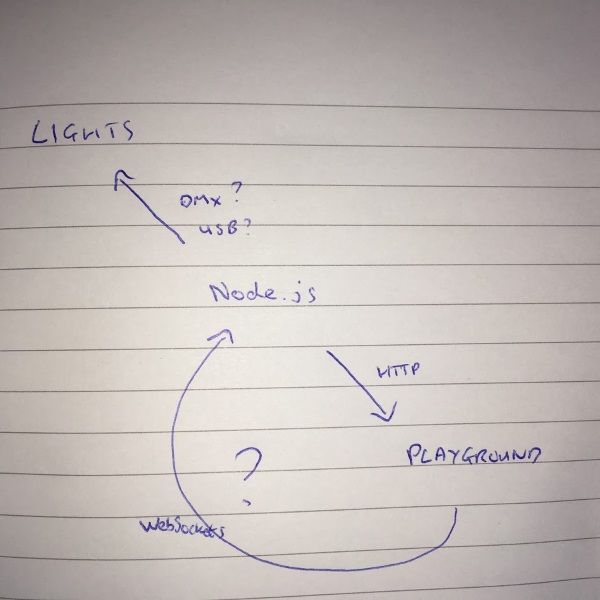 LIGHTS
DMX?
USB?
Node.js
HTTP
PLAYGROUND
?
WebSockets